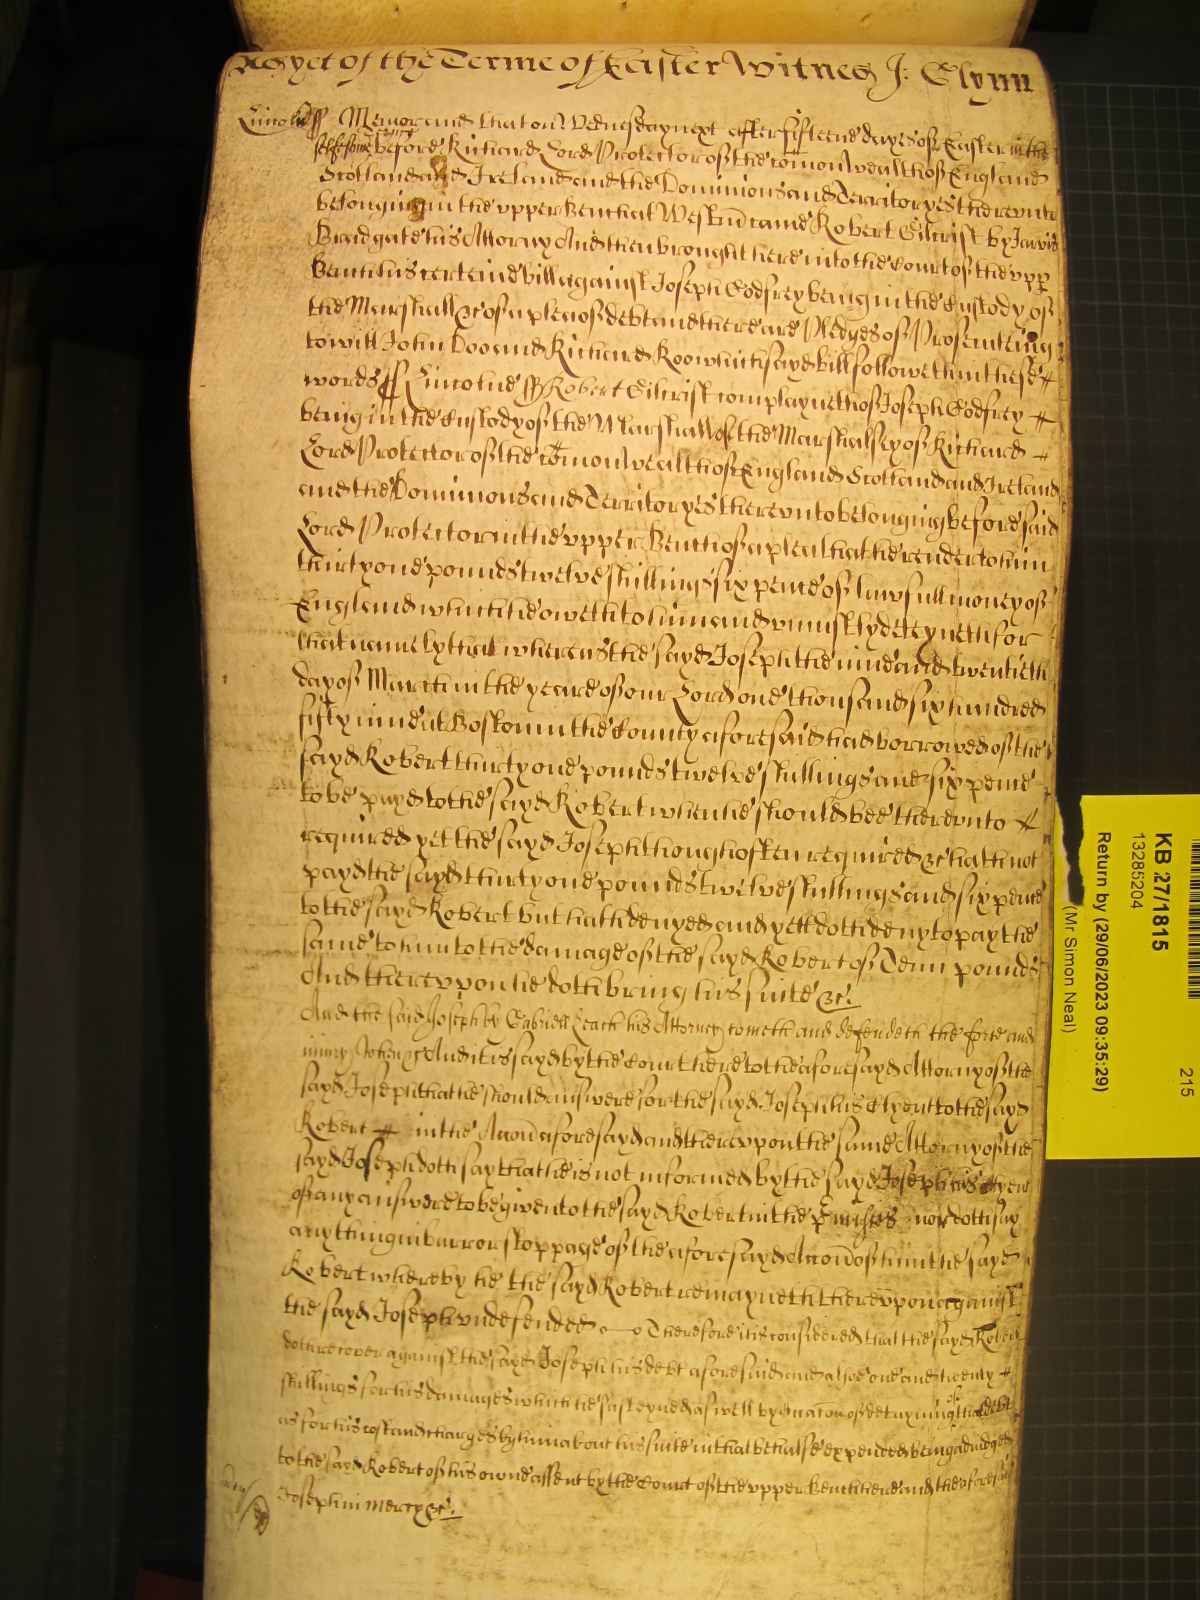 As yet of the Terme of Easter Witnes J: Glynn
Lincolne ss Memorand that on Wednesday next after fifteene dayes of Easter in the
selfesame terme before Richard Lord Protector of the comonwealth of England
Scotland and Ireland and the Dominions and Territoryes thereunto
belonging in the upper Bench at Westm came Robert Gilcrist by Jarvis
Bradgate his Attorny And then brought here into the Court of the upp
Bench his certeine bill against Joseph Godfrey being in the Custody of
the Marshall &c of a plea of debt and there are Pledges of Prosecuteing
to witt John Doo and Richard Roo which sayd bill followeth in these
words ss Lincolne ss Robert Gilcrist complayneth of Joseph Godfrey
being in the Custody of the Marshall of the Marshalsey of Richard
Lord Protector of the comonwealth of England Scotland and Ireland
and the Dominions and Territoryes thereunto belonging before said
Lord Protector in the upper Bench of a plea that he render to him
thirty one pounds twelve shillings six pence of lawfull money of
England which he oweth to him and uniustly deteyneth for
that namely that whereas the sayd Joseph the nine and twentieth
day of March in the yeare of our Lord one thousand six hundred
fifty nine at Boston in the County aforesaid had borrowed of the
sayd Robert thirty one pounds twelve shillings and six pence
to be payd to the sayd Robert when he should bee thereunto
required yet the sayd Joseph though often required &c hath not
payd the sayd thirty one pounds twelve shillings and six pence
to the sayd Robert but hath denyed and yett doth deny to pay the
same to him to the damage of the sayd Robert of Tenn pounds
And thereupon he doth bring his suite &c.
And the said Joseph by Gabriell Leach his Attorney cometh and defendeth the force and
iniury when &c And it is sayd by the Court here to the aforesayd Attorny of the
sayd Joseph that he should answere for the sayd Joseph his Clyent to the sayd
Robert in the Accon aforesayd and thereupon the same Attorny of the
sayd Joseph doth say that he is not informed by the sayd Joseph his Clyent
of any answere to be given to the sayd Robert in the p'misses nor doth say
any thing in barr or stoppage of the aforesayd Accon of him the sayd
Robert whereby he the sayd Robert remayneth thereupon against
the sayd Joseph undefended Therefore it is considered that the sayd Robert
doth recover against the sayd Joseph his debt aforesaid and alsoe one and twenty
shillings for his damages which he susteyned as well by occacon of detayning of that debt
as for his costs and charges by him about his suite in that behalfe expended being adiudged
to the sayd Robert of his owne assent by the Court of the upper Bench here and the aforesaid
Joseph in mercy &c.
KB 27/1815
13285204
Return by (29/06/2023 09:35:29)
(Mr Simon Neal)
215